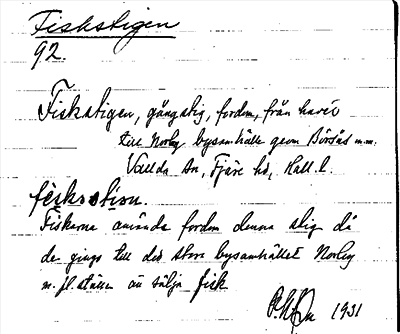 Fiskstigen
92.
Fiskstigen, gångstig, fordom, från havet
till Norby bysamhälle genom Börsås m.m.
Vallda sn, Fjäre hd, Hall. l.
Fiskarna använde fordom denna stig då
de gingo till det stora bysamhället Norby
m. fl. ställen att sälja fisk
1931